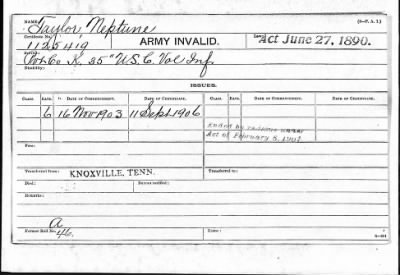 NAME: Taylor Neptune (3-P. A. I.)
Certificate No. 1125419 ARMY INVALID. Law: Act June 27, 1890.
Service: Pvt. Co K. 35" U.S.C. Vol Inf.
Disability:
ISSUES.
CLASS. RATE. DATE OF COMMENCEMENT. DATE OF CERTIFICATE. CLASS. RATE. DATE OF COMMENCEMENT. DATE OF CERTIFICATE.
6 16 Nov 1903 11 Sept 1906
Ended by reissue under
Act of February 6, 1907.
Fee:
Transferred from KNOXVILLE, TENN. Transferred to:
Died: Bureau notified:
Remarks:
a
Former Roll No. 46.